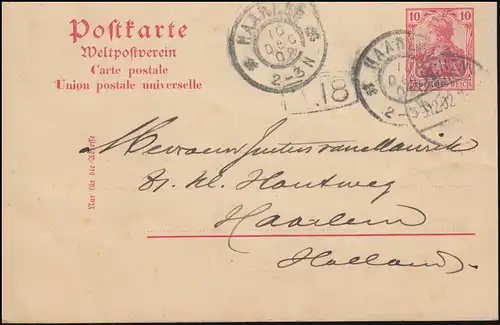 Postkarte
Weltpostverein
Carte postale
Union postale universelle
10 10
REICH
HAARLEM
10
DEC
02
2-3N
HAARLEM
2-3
.12.02
18
Nur für die Adresse
Mevrouw
Kl. Houtweg
Haarlem
Holland.